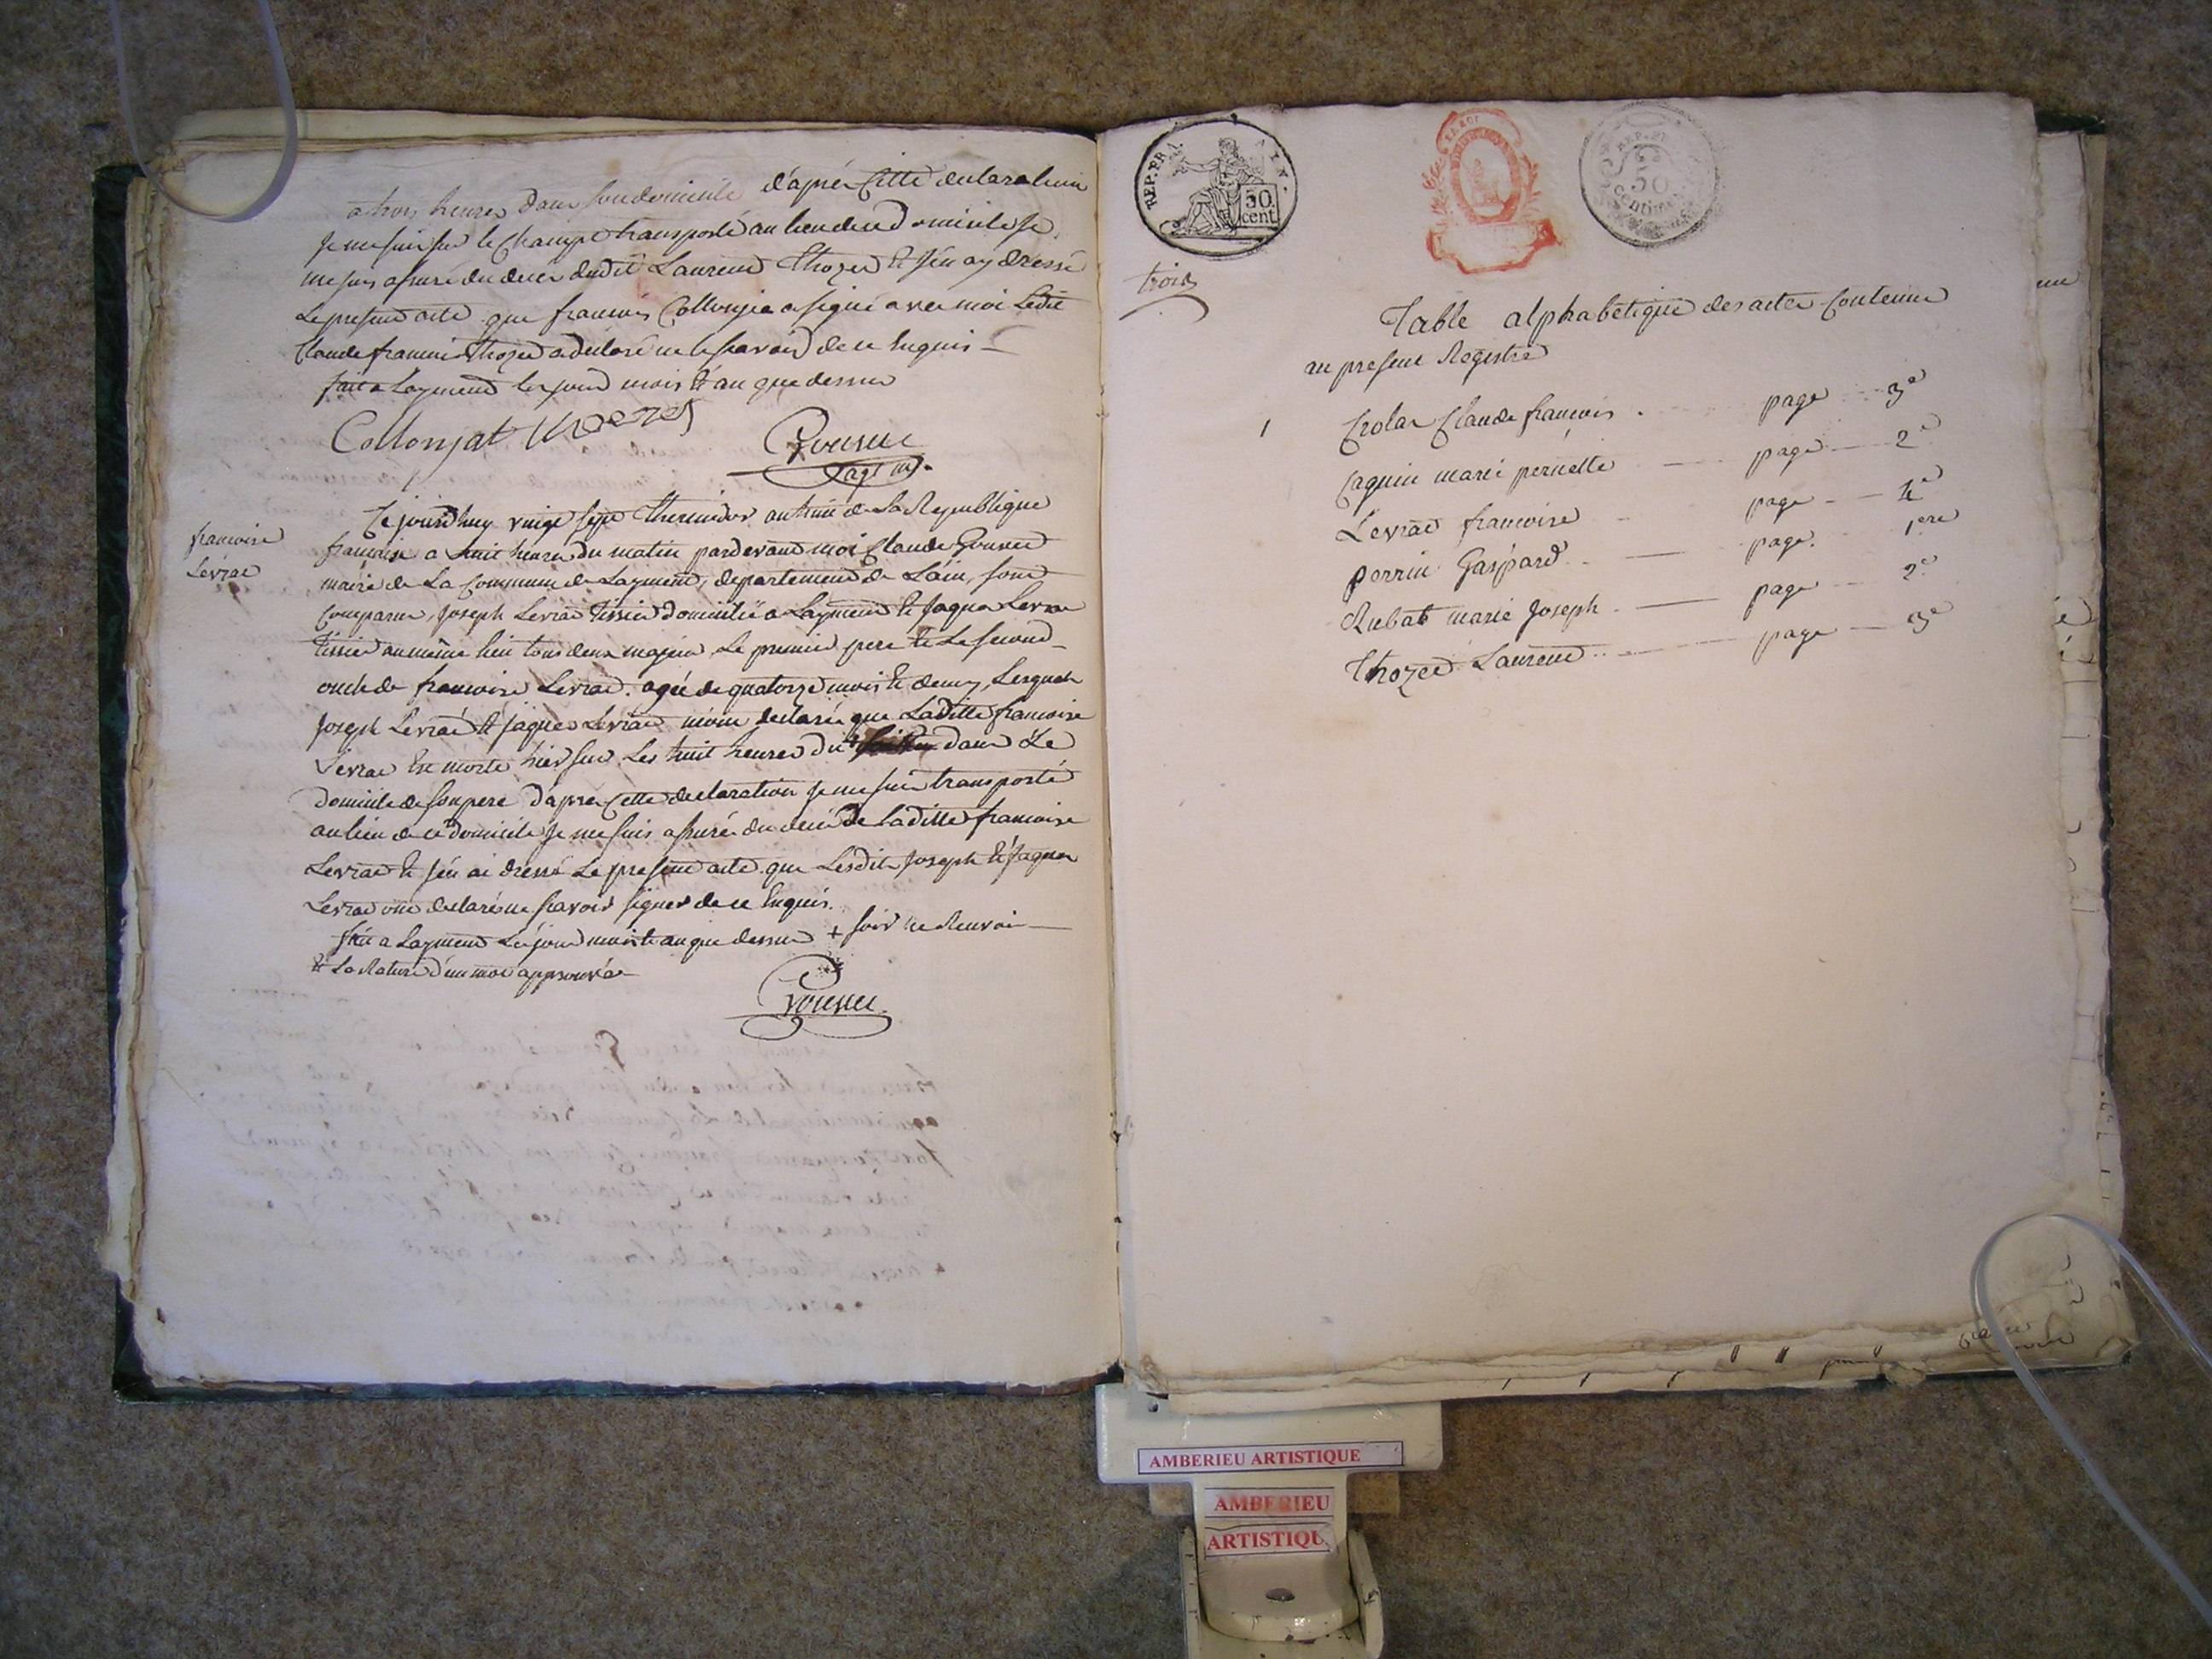 a trois heures dans son domicile d'apres Cette declaration
Je me suis sur le Champt transporté au lieu de ce domicile Je
me suis assuré du deces dudit Laurend Thozet Et J'en ay dressé
Le present acte que francois Collonja a signé avec moi Ledit
Claude francois Thozet a declaré ne le scavoir de ce Enquis
fait a Laymend les jour mois Et an que dessus
Collonjat
Gouvet
agt m.
francoise
Levrat
Ce jourd'huy vingt sept thermidor an huit de La Republique
francaise a huit heures du matin pardevant moi Claude Gouvet
maire de La Commune de Layment, departement de L'ain, sont
Comparus, Joseph Levrat tissier domicilié a Layment Et Jaques Levrat
tissier au même lieu tous deux majeur Le premier pere Et Le second
oncle de francoise Levrat. agée de quatorze mois Et demy, Lesquels
Joseph Levrat Et Jaques Levrat m'ont declaré que Laditte francoise
Levrat Est morte hier sur Les huit heures du + dans Le
domicile de son pere d'apres Cette declaration Je me suis transporté
au lieu de ce domicile Je me suis assuré du decé de Laditte francoise
Levrat Et J'en ai dressé Le present acte que Lesdits Joseph Et Jaques
Levrat ont declaré ne scavoir signer de ce Enquis.
fait a Layment Les jour mois Et an que dessus + soir Ce Renvoi
Et La Rature d'un mot approuvée
Gouvet
REP. FRA.
50.
cent.
REP. FR
50
centimes
trois
Table alphabetique des actes Contenue
au present Registre
1 Crolas Claude francois . page 3e
Caquin marie pernette page 2e
Levrat francoise page 4e
perrin Gaspard page. 1ere
Rubat marie Joseph page 2e
Thozet Laurend page 3e
AMBERIEU ARTISTIQUE
AMBERIEU
ARTISTIQU